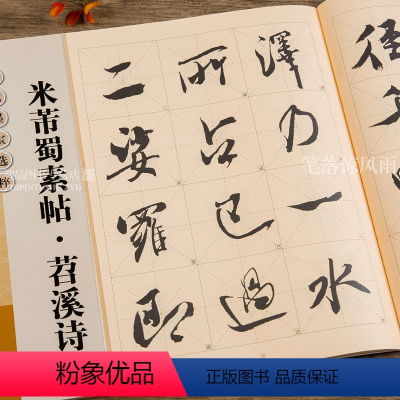 选粹
米芾蜀素帖·苕溪诗
澤乃一水
所占已過
二娑羅即
笔落惊风雨
粉象优品
正版图书 品质保证